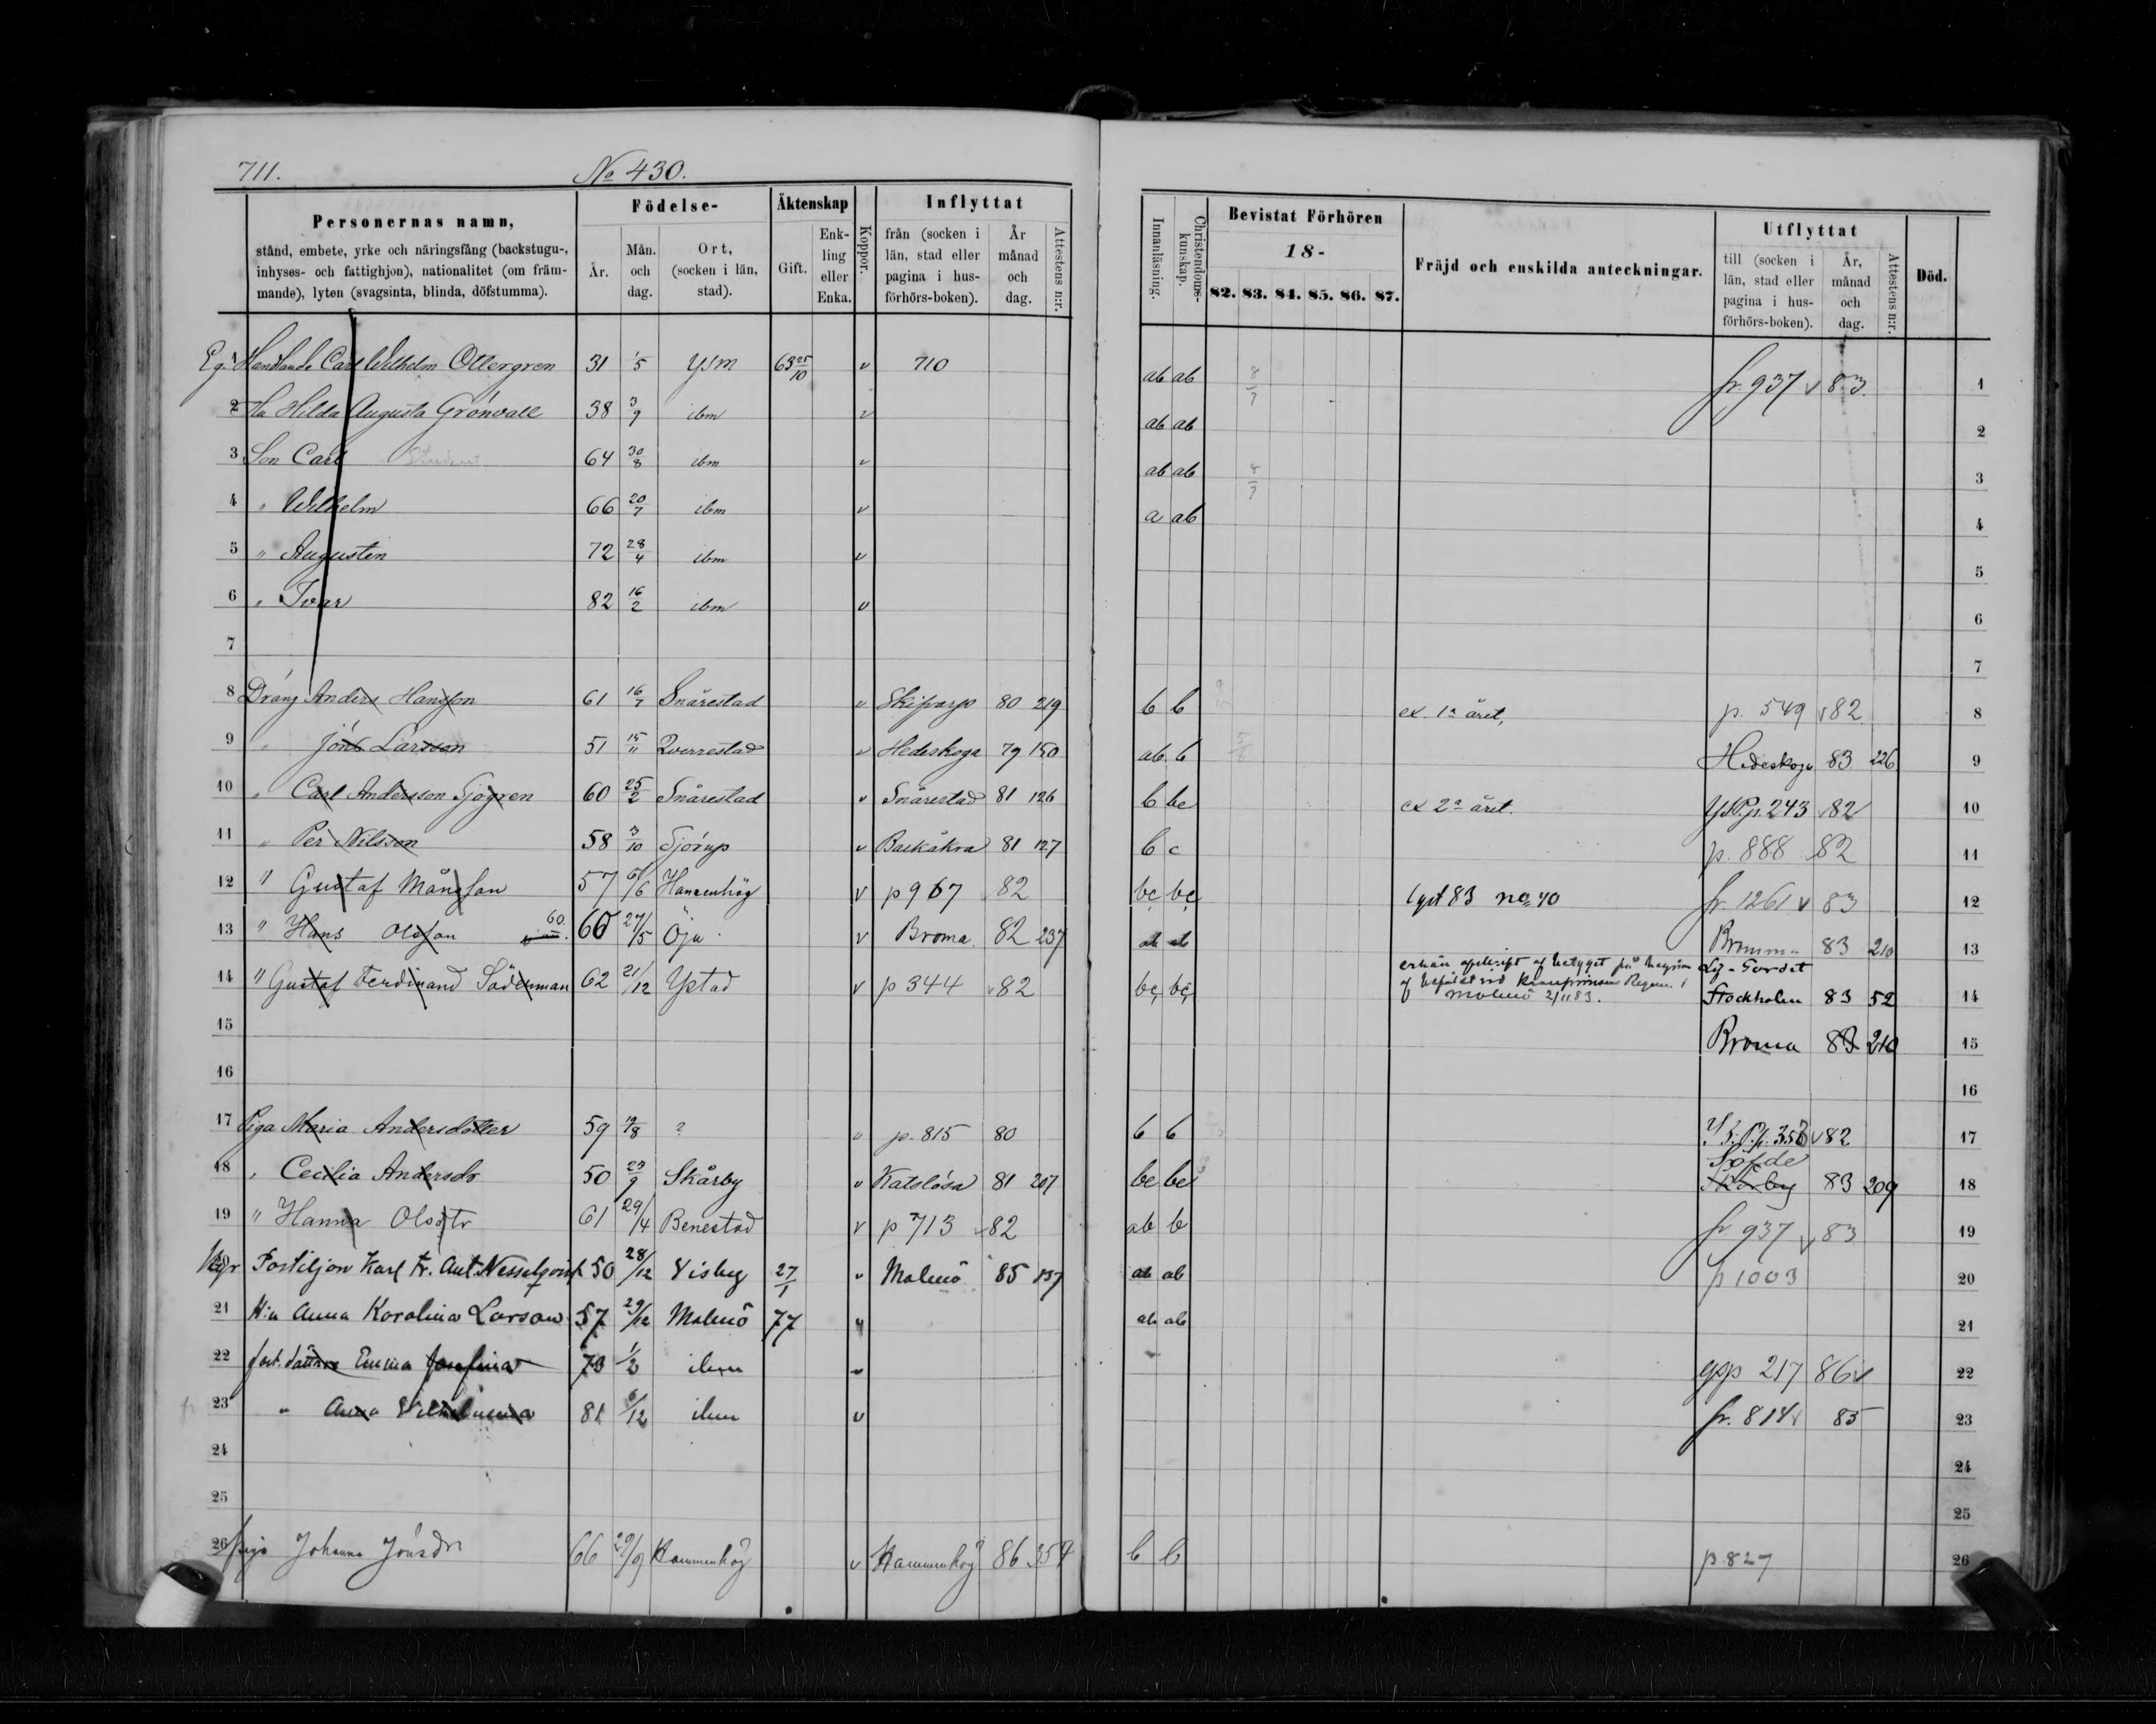 711. No 430.
Personernas namn,
stånd, embete, yrke och näringsfång (backstugu-,
inhyses- och fattighjon), nationalitet (om främ-
mande), lyten (svagsinta, blinda, döfstumma).
Födelse-
År.
Mån.
och
dag.
Ort,
(socken i län,
stad).
Äktenskap
Gift.
Enk-
ling
eller
Enka.
Koppor.
Inflyttat
från (socken i
län, stad eller
pagina i hus-
förhörs-boken).
År
månad
och
dag.
Attestens n:r.
Innanläsning.
Christendoms-
kunskap.
Bevistat Förhören
18-
82. 83. 84. 85. 86. 87.
Fräjd och enskilda anteckningar.
Utflyttat
till (socken i
län, stad eller
pagina i hus-
förhörs-boken).
År,
månad
och
dag.
Attestens n:r.
Död.
Eg. 1 Handlande Carl Wilhelm Ollergren 31 1/5 Ysm 63 25/10 v 710 ab ab 8/7 fr. 937 v 83. 1
2 Ha Hilda Augusta Grönvall 38 3/9 ibm v ab ab 2
3 Son Carl Student 64 30/8 ibm v ab ab 8/7 3
4 " Wilhelm 66 20/7 ibm v a ab 4
5 " Augustin 72 28/4 ibm v 5
6 " Ivar 82 16/2 ibm v 6
7 7
8 Dräng Anders Hansson 61 16/7 Snårestad v Skifvarp 80 219 b b ex. 1a året, p. 549 v 82 8
9 " Jöns Larsson 51 15/11 Qverrestad v Hedeskoga 79 150 ab b Hedeskoga 83 226 9
10 " Carl Andersson Sjögren 60 25/2 Snårestad v Snårestad 81 126 b bc ex 2a året. YstP.p. 243 v 82 10
11 " Per Nilsson 58 3/10 Sjörup v Baekåkra 81 127 b c p. 888 82 11
12 " Gustaf Månsson 57 6/6 Hannenhög v p 967 82 bc bc lyst 83 no 40 fr. 1261 v 83 12
13 " Hans Olsson 60. 60 27/5 Öja v Broma. 82 237 ab ab Bromma 83 210 13
14 " Gustaf Ferdinand Söderman 62 21/12 Ystad v p 344 v 82 bc bc
Malmö 2/11 83. Stockholm 83 52 14
15 Broma 83 210 15
16 16
17 Piga Maria Andersdotter 59 19/8 ? v p. 815 80 b b Y.s.P.p. 353 v 82 17
Söfde
18 " Cecilia Andersdr 50 23/9 Skårby v Katslösa 81 207 bc bc Skårby 83 209 18
19 " Hanna Olsdtr 61 29/4 Benestad v p 713 v 82 ab b fr 937 v 83 19
20 Postiljon Karl Fr. Aut. Nesselqvist 50 28/12 Visby 27/1 v Malmö 85 137 ab ab p 1003 20
21 H:u Anna Karolina Larson 57 29/12 Malmö 77 v ab ab 21
22 Emma Josefina 73 1/2 ibm v ysp 217 86 v 22
23 " Anna Vilhelmina 81 6/12 ibm v fr. 814 v 85 23
24 24
25 25
26 piga Johanna Jönsdr 66 29/9 Hammenhög v Hammenhög 86 354 b b p 827 26